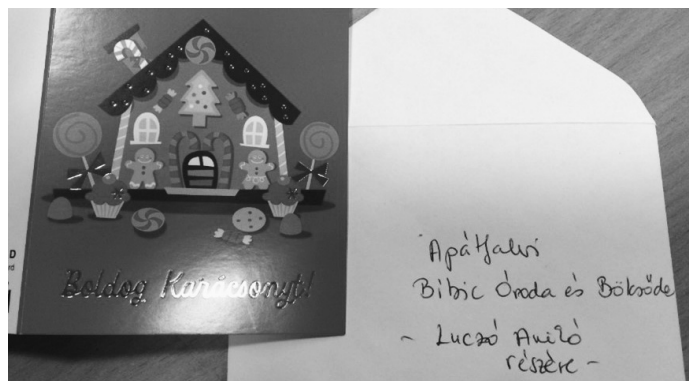 Boldog Karácsonyt!
Apátfalvi
Bibic Óvoda és Bölcsőde
- Luczó Anikó
részére -